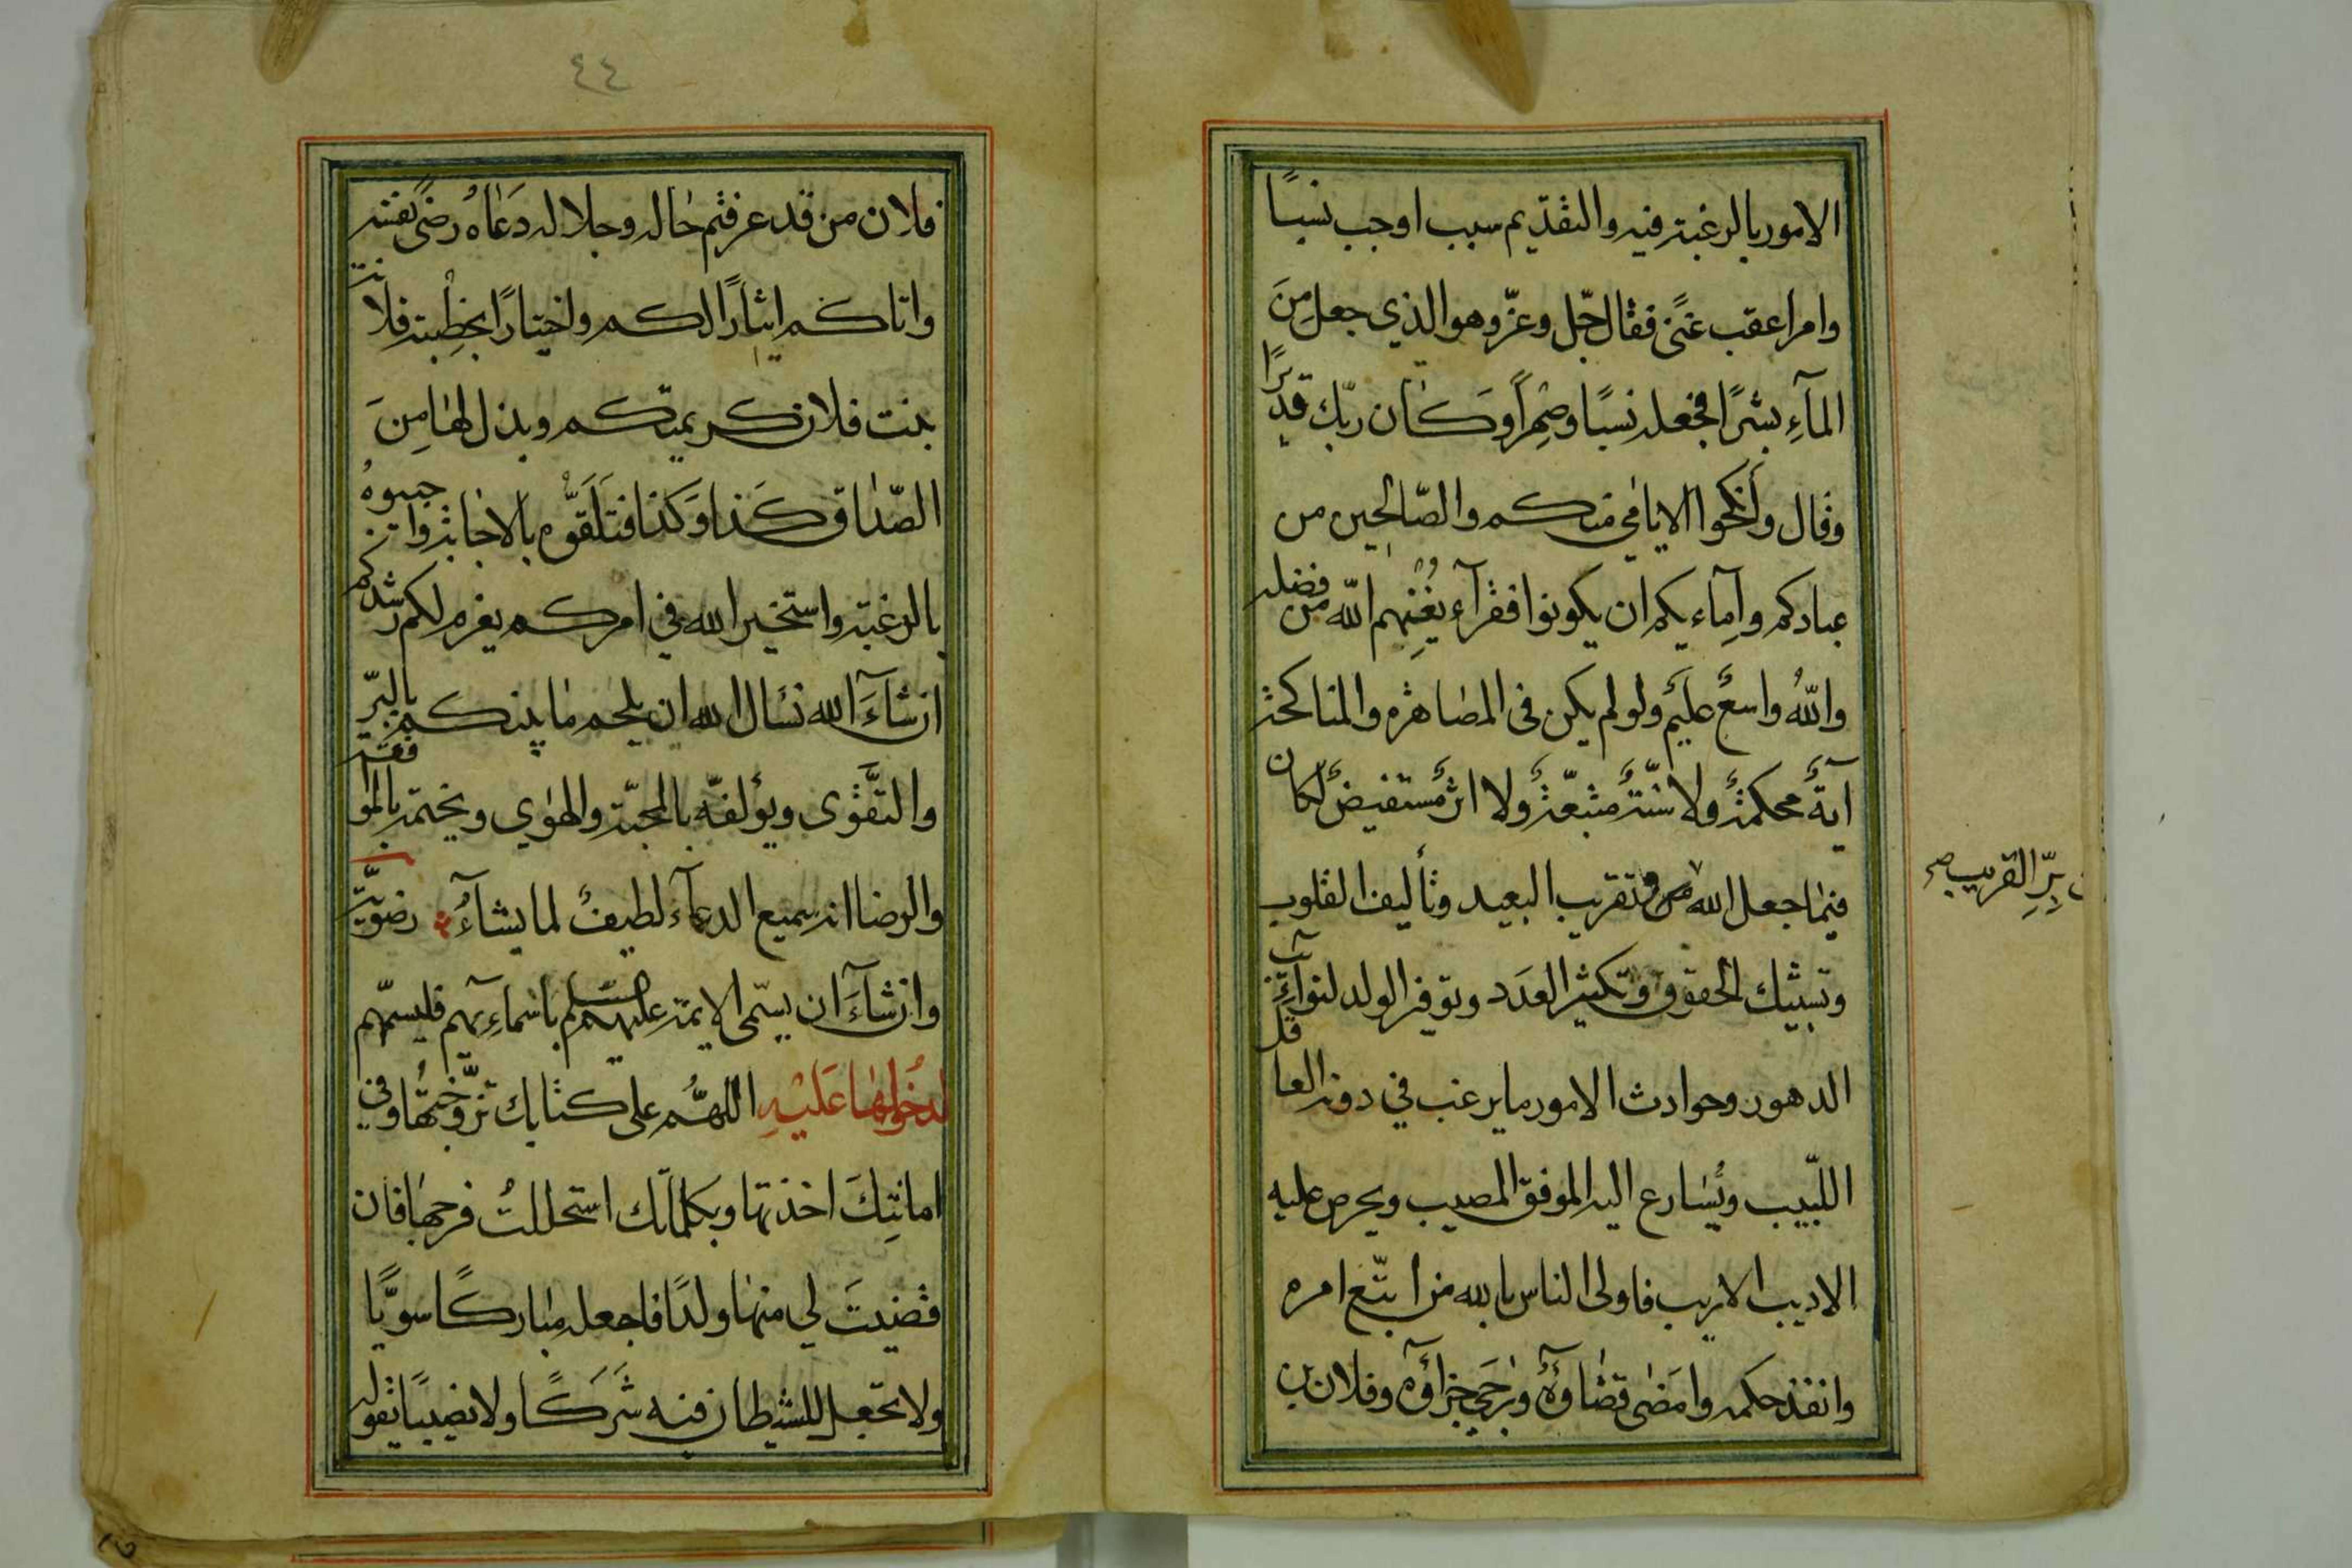 الامور بالرغبة فيه والتقديم سبب اوجب نسبًا
وامرا عقب غنًى فقال جلّ وعزّ وهو الذي جعل مِنَ
المآءِ بشرًا فجعله نسبًا وصِهرًا وَكان ربّك قديرًا
وقال وأنكحوا الايامٰى منكم والصّالحِين من
عبادكم وآِماءِيكم ان يكونوا فقرآء يُغْنِهم اللّه من فضله
واللّهُ واسعٌ عليمٌ ولو لم يكن فى المصاهرة والمناكحة
آيةٌ محكمةٌ ولا سُنّةٌ متّبعةٌ ولا اثرٌ مستفيضٌ لكان
فيما جعل الله من وتقريب البعيد وتأليف القلوب
برِّ القريب صح
وتشبيك الحقوق وتكثير العدَد وتوفير الولد لنوآئب
الدهور وحوادث الامور ما يرغب في دونه العاقل
اللّبيب ويُسارع اليه الموفق المصيب ويحرص عليه
الاديب الاريب فاولى الناس بالله من اتّبع امره
وانفذ حكمه وامَضٰى قضاؤهُ ورَجى جزاؤه وفلان بن
٤٤
فلان من قد عرفتم حاله وجلاله دَعَاهُ رضٰى نفسه
واتاكم ايثارًا لكم واختيارًا بخِطْبة فلانة
بنت فلان كريمتكم وبذل لها مِنَ
الصّداق كَذا وَكَذا فتَلَقَّوْه بالاجابة واجيبوهُ
بالرغبة واستخيروا الله في امركم يعزم لكم رشدكم
انشآءَ الله نسَال الله ان يلحم ما بينكم بالبِرّ
والتقَّوى ويؤلفّه بالمحبّة والهوٰي ويختمه بالموافقة
والرضا انه سميع الدعآء لطيفٌ لما يشآءُ رضوّية
وانشآءَ ان يسمّى الايمة عليهم السلم باسمآءِيهم فليسمّهم
لدخُولهٰا عَليْهِ اللهُّم على كتابك تزوّجتُها وفي
امانتِكَ اخذتها وبكلماتك استحللتُ فرجها فان
قضيتَ لي منها ولدًا فاجعله مباركًا سويًّا
ولا تجعل للشيطان فيه شَرَكًا ولا نصيبًا تقوله